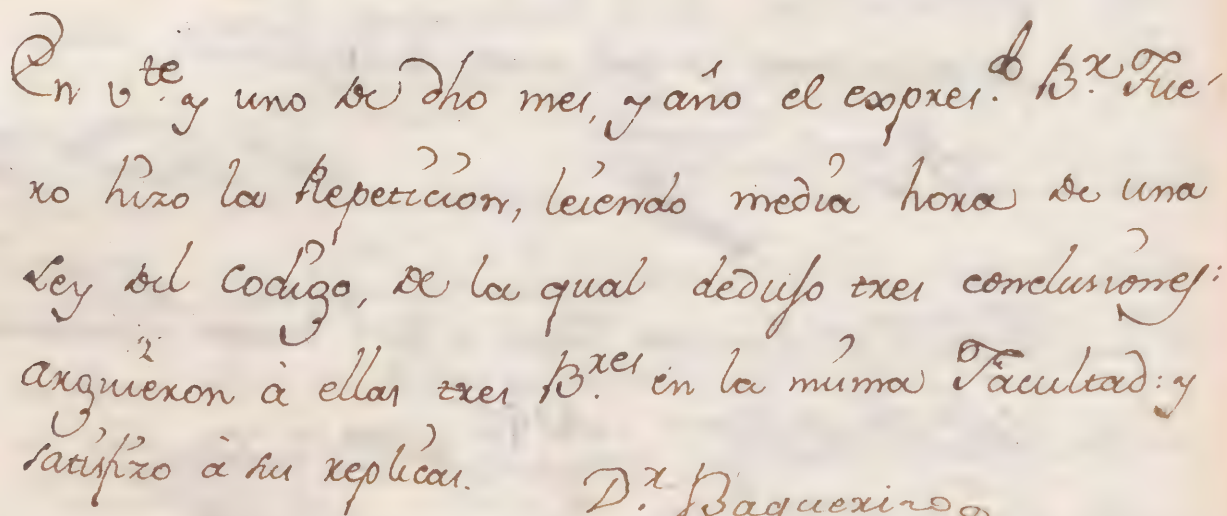 En v.te y uno de dho mes, y año el expres.do B.r Fue-
ro hizo la Repeticion, leiendo media hora de una
Ley del Codigo, de la qual deduso tres conclusiones:
arguieron à ellas tres B.res en la misma Facultad: y
satisfizo à sus replicas.
D.r Baquerizo